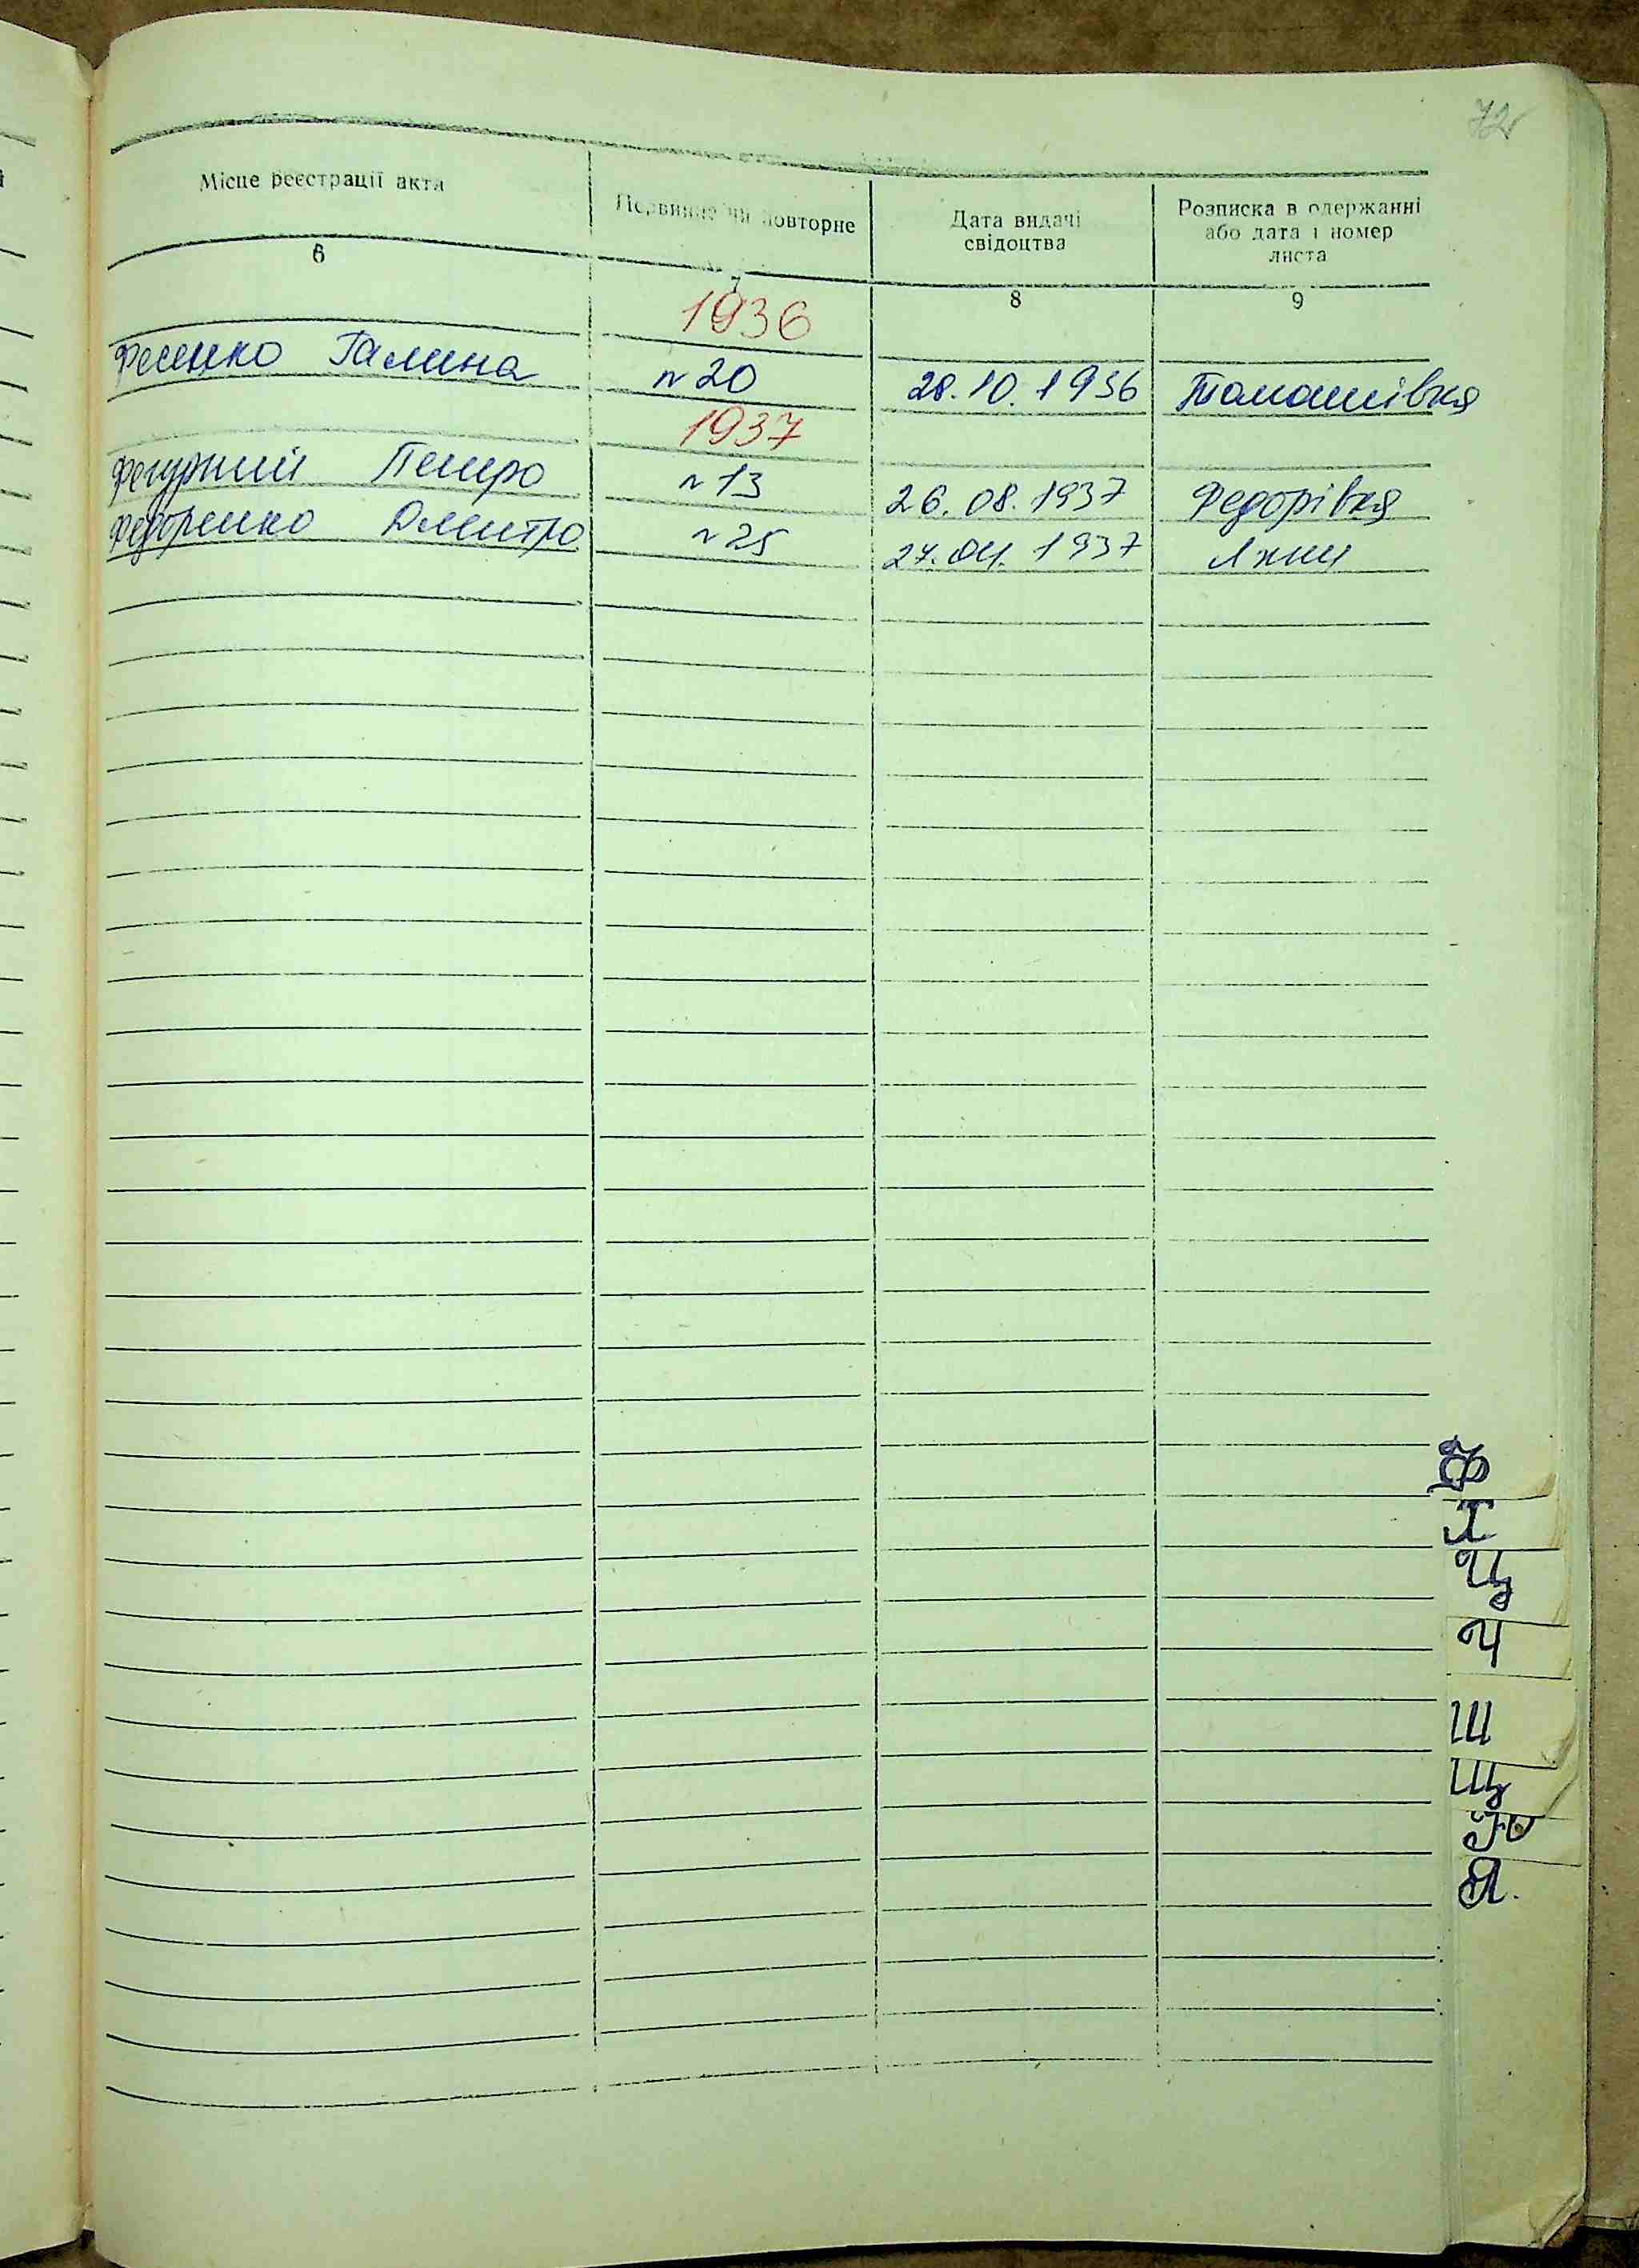 72
Місце реєстрації акта
Первинне чи повторне
Дата видачі
свідоцтва
Розписка в одержанні
або дата і номер
листа
6 7 8 9
1936
Фесенко Галина n 20 28.10.1936 Томашівка
1937
Петро n 13 26.08.1937 Федорівка
Федоренко Дмитро n 25 27.04.1937
Ф
Х
Ц
Ч
Ш
Щ
Ю
Я.